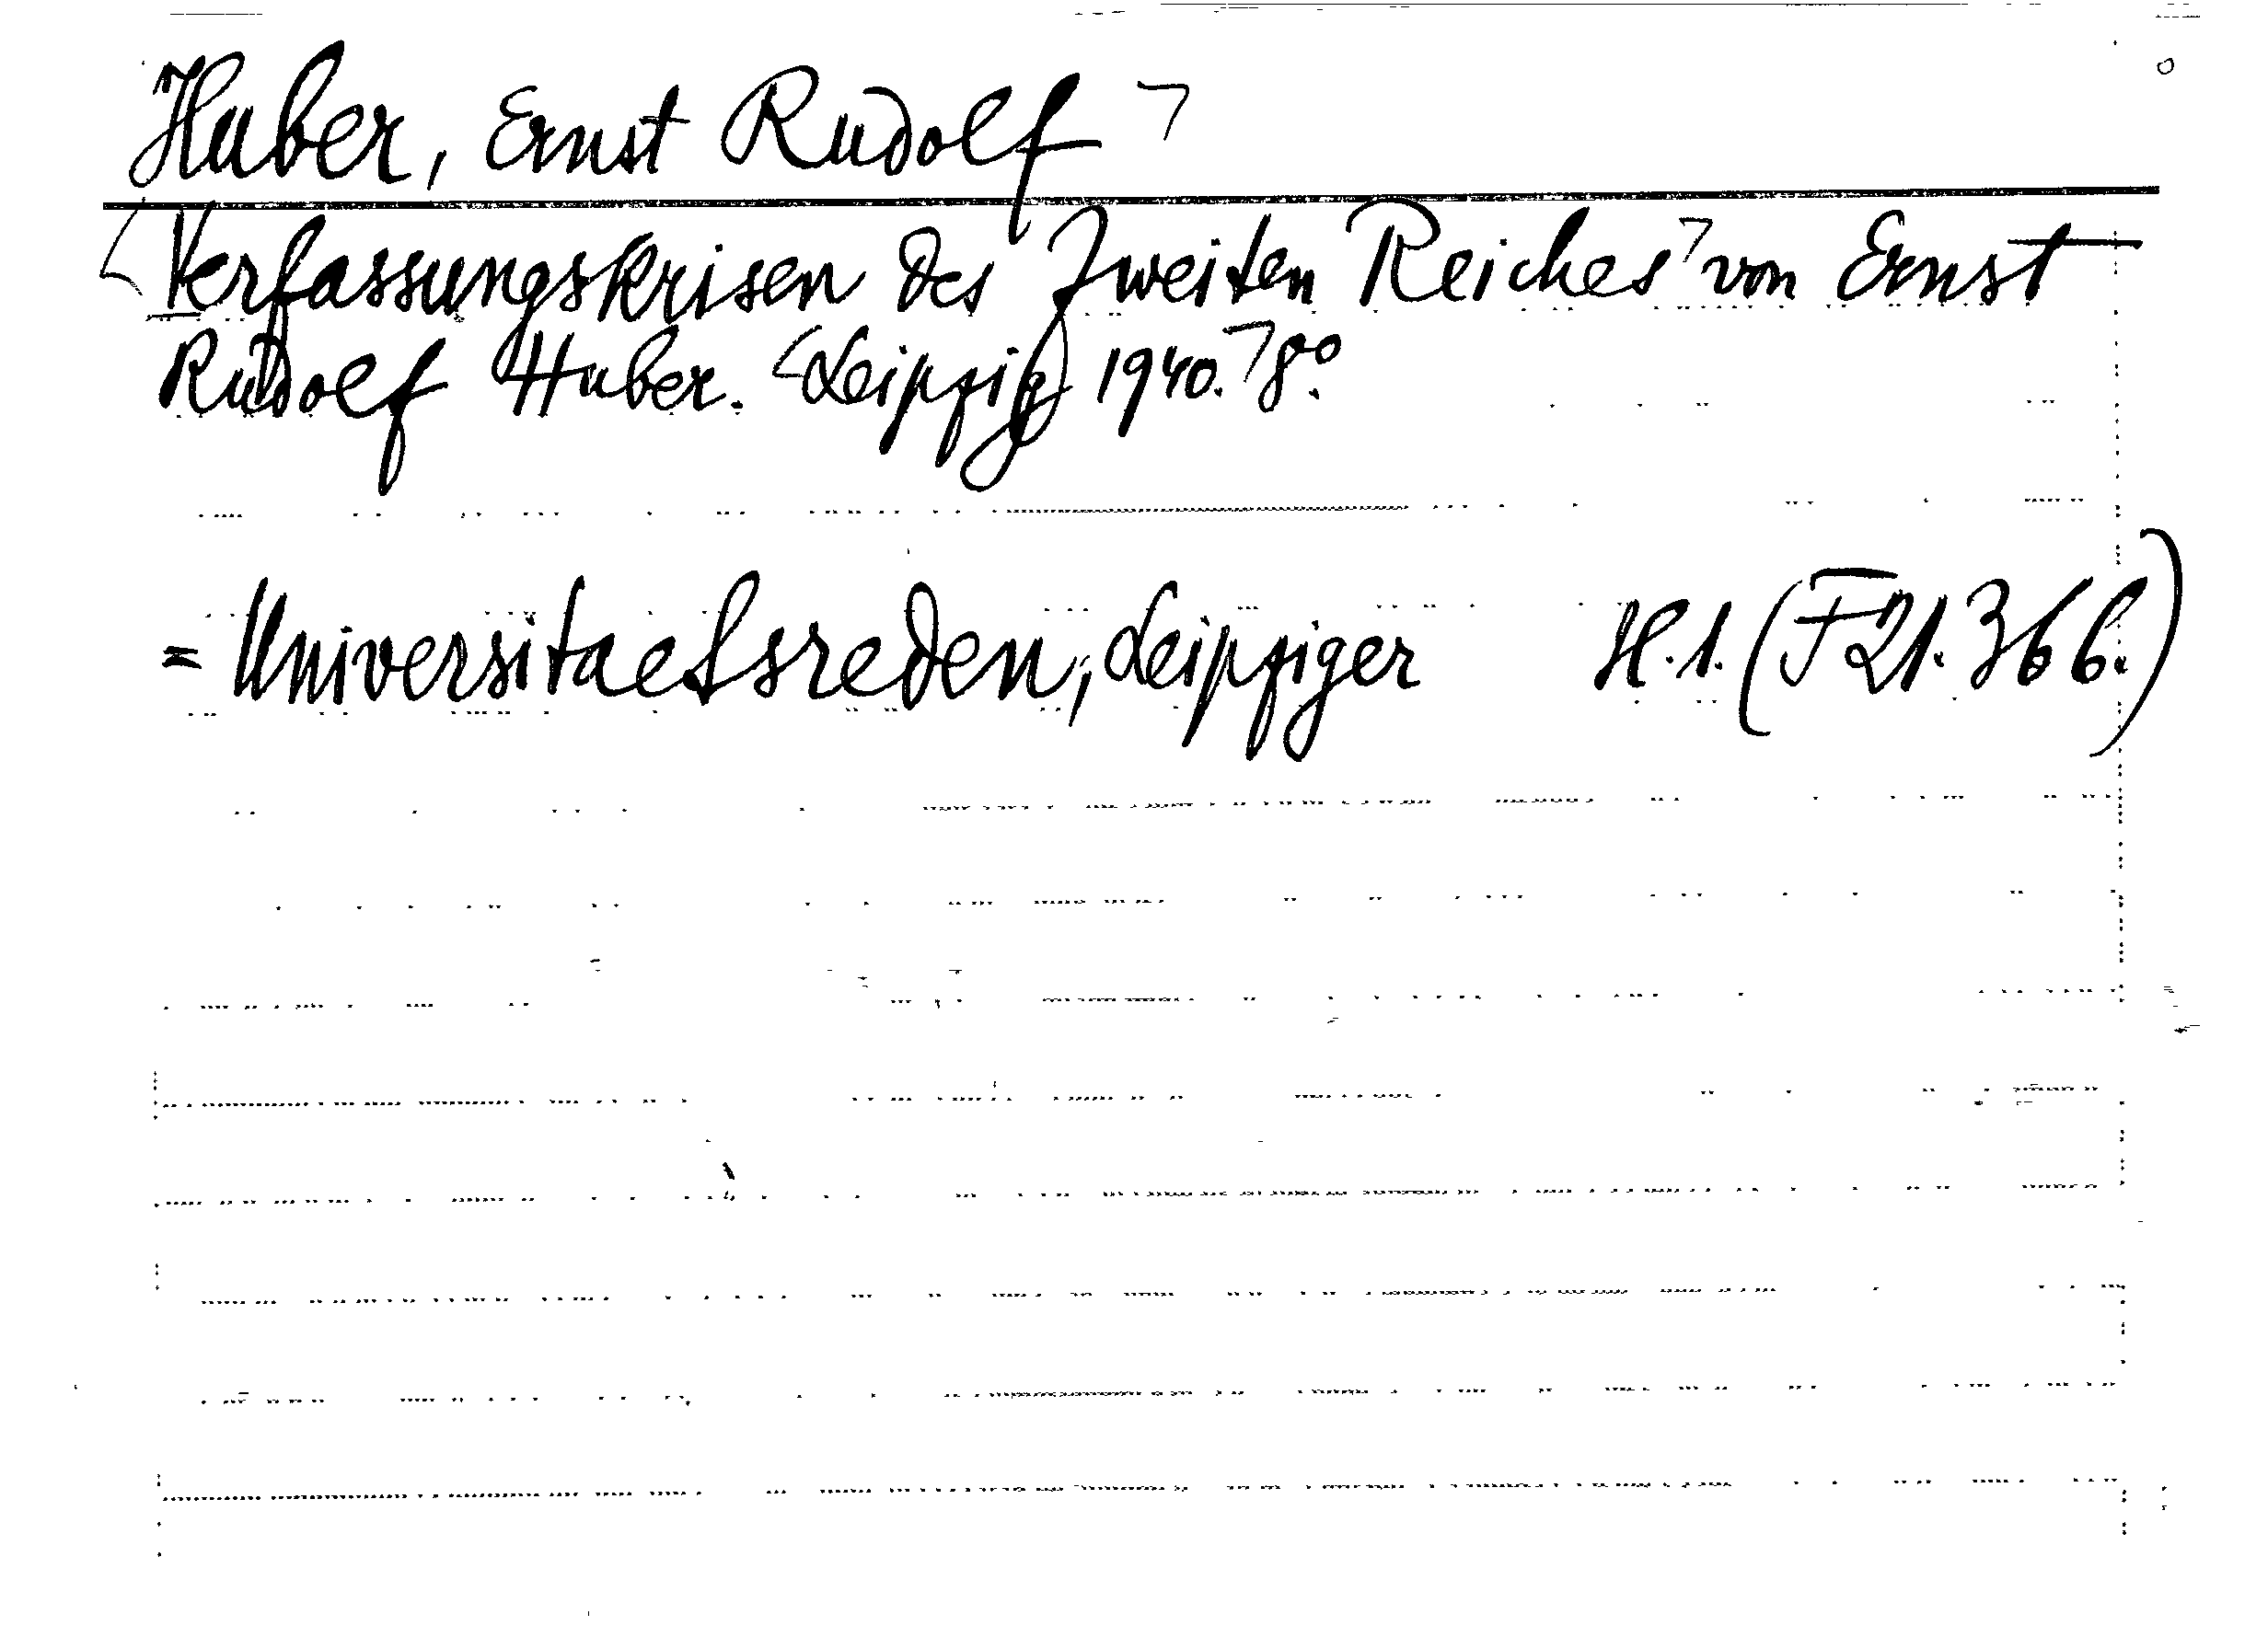 Huber, Ernst Rudolf
Verfassungskrisen des Zweiten Reiches von Ernst
Rudolf Huber. Leipzig 1940. 8°.
= Universitaetsreden, Leipziger H. 1. (F 21. 366.)